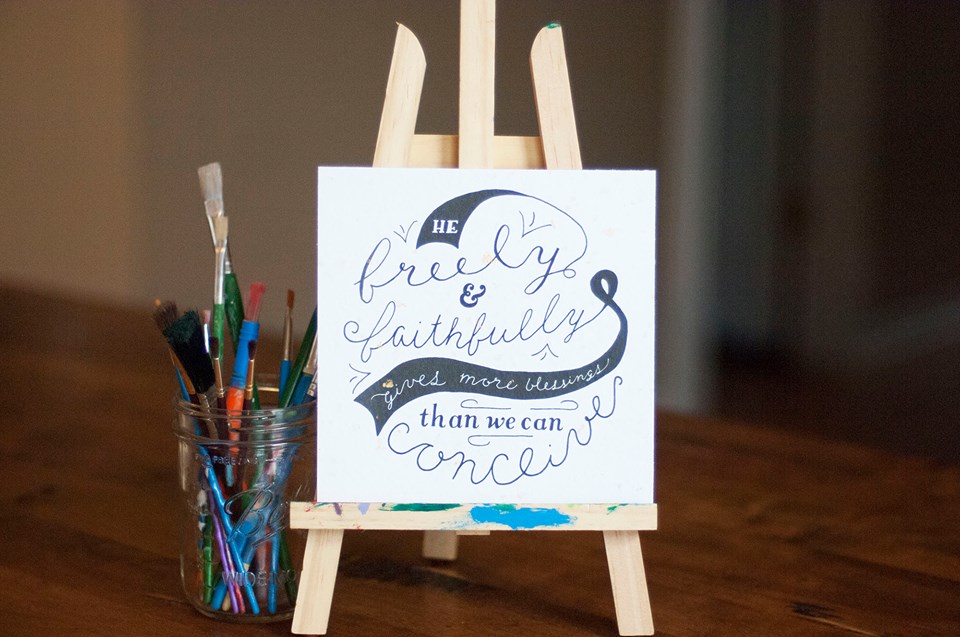 HE
freely
&
faithfully
gives more blessings
than we can
conceive
WIDE MO